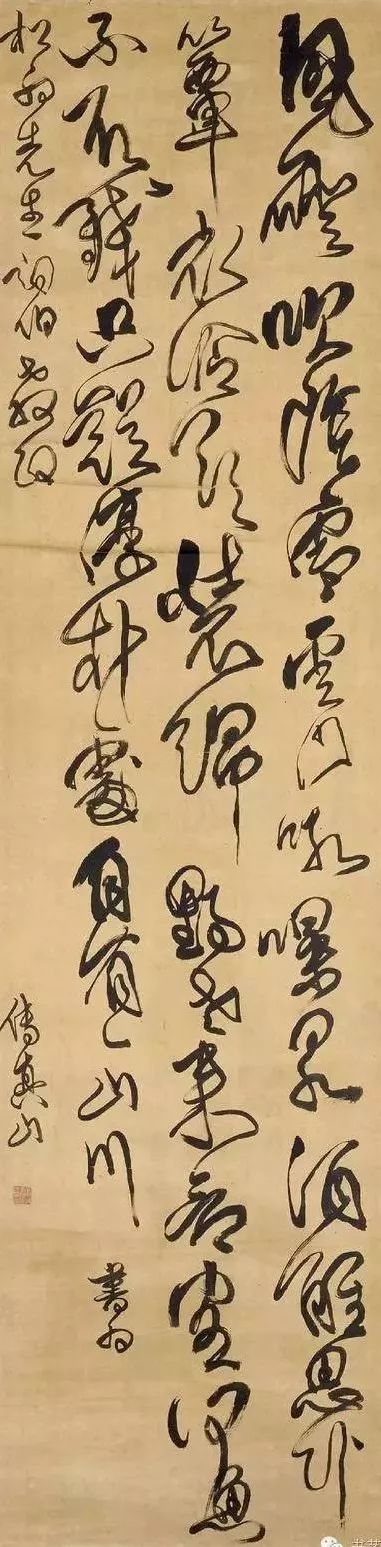 風磴吹陰雪雲門吼瀑泉酒醒思臥
簟衣冷欲裝綿野老來看客河魚
不取錢只疑淳朴處自有一山川 書為
松翁先生詞伯教政 傅真山